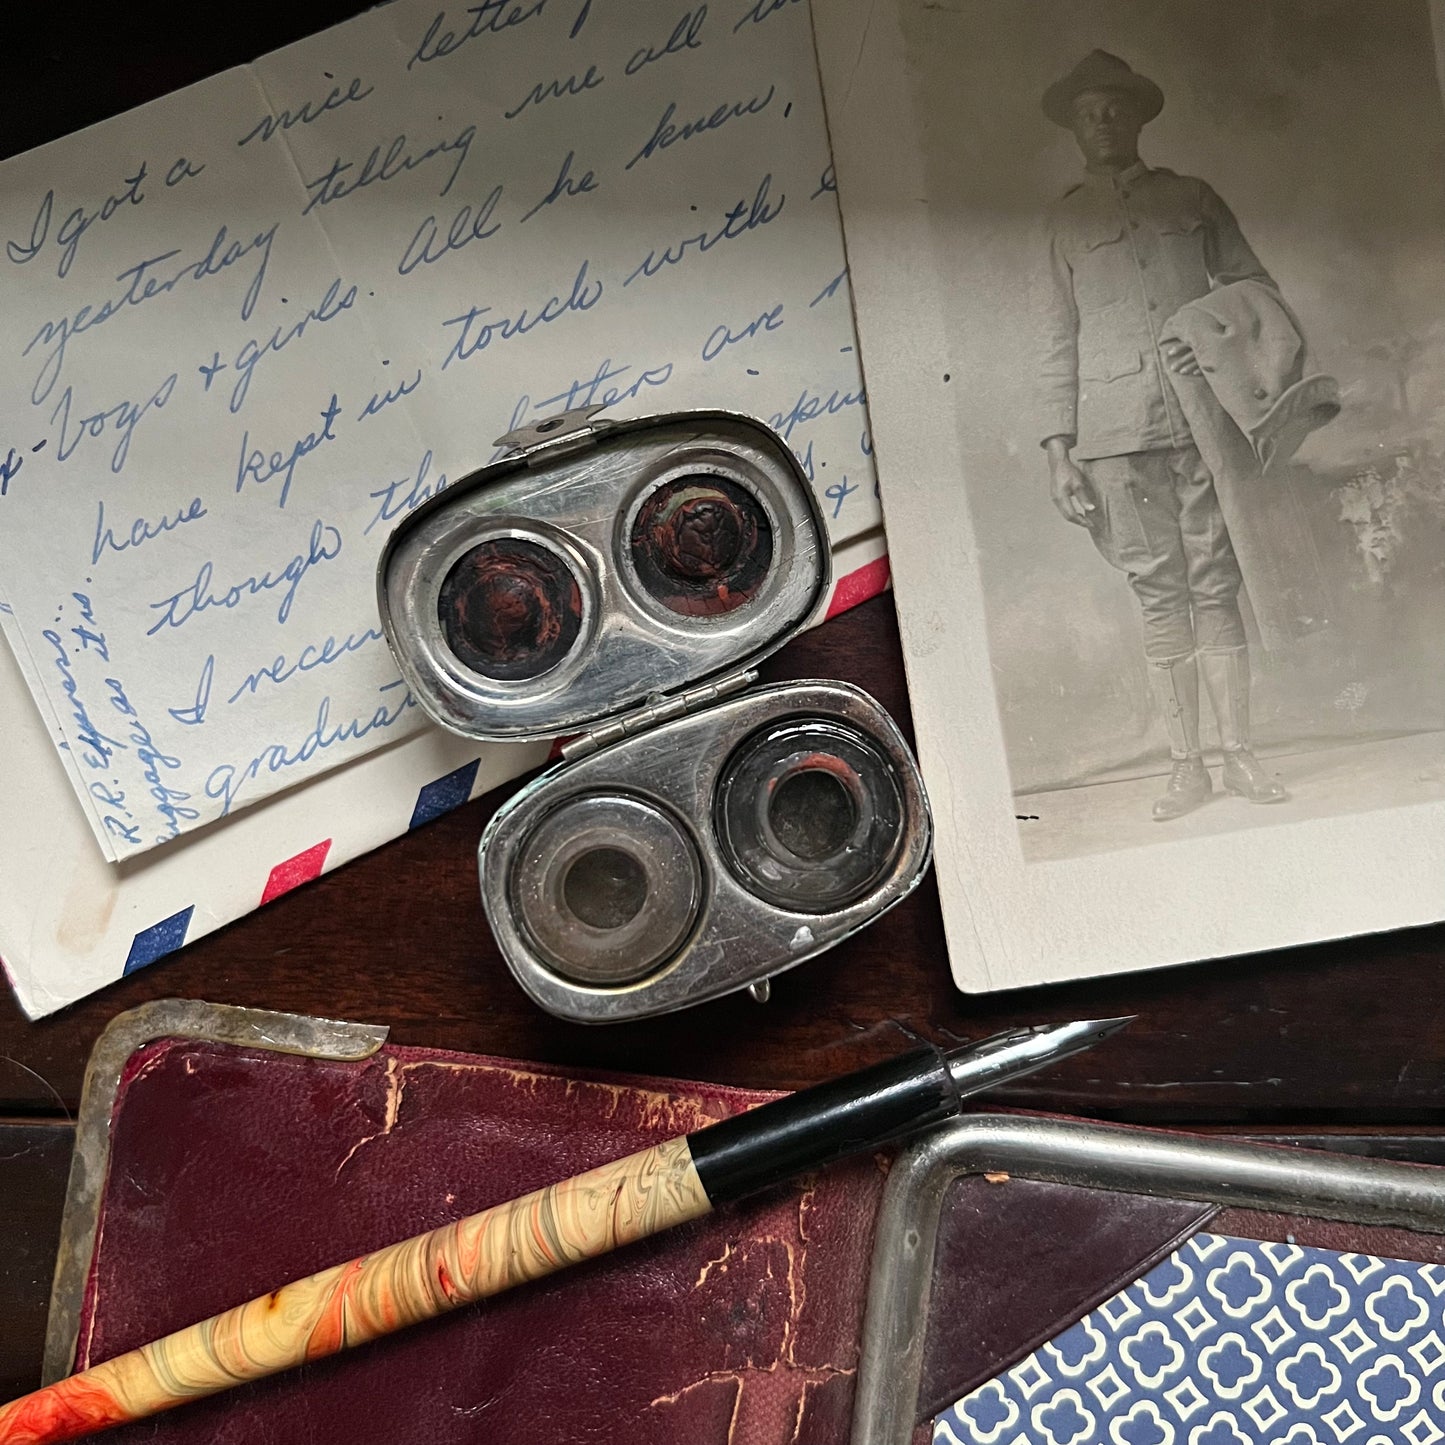 I got a nice letter
yesterday telling me all
boys & girls. All he knew,
have kept in touch with
though the letters are
I receiv
graduat
&
R.R. Express.
luggage, as it is.